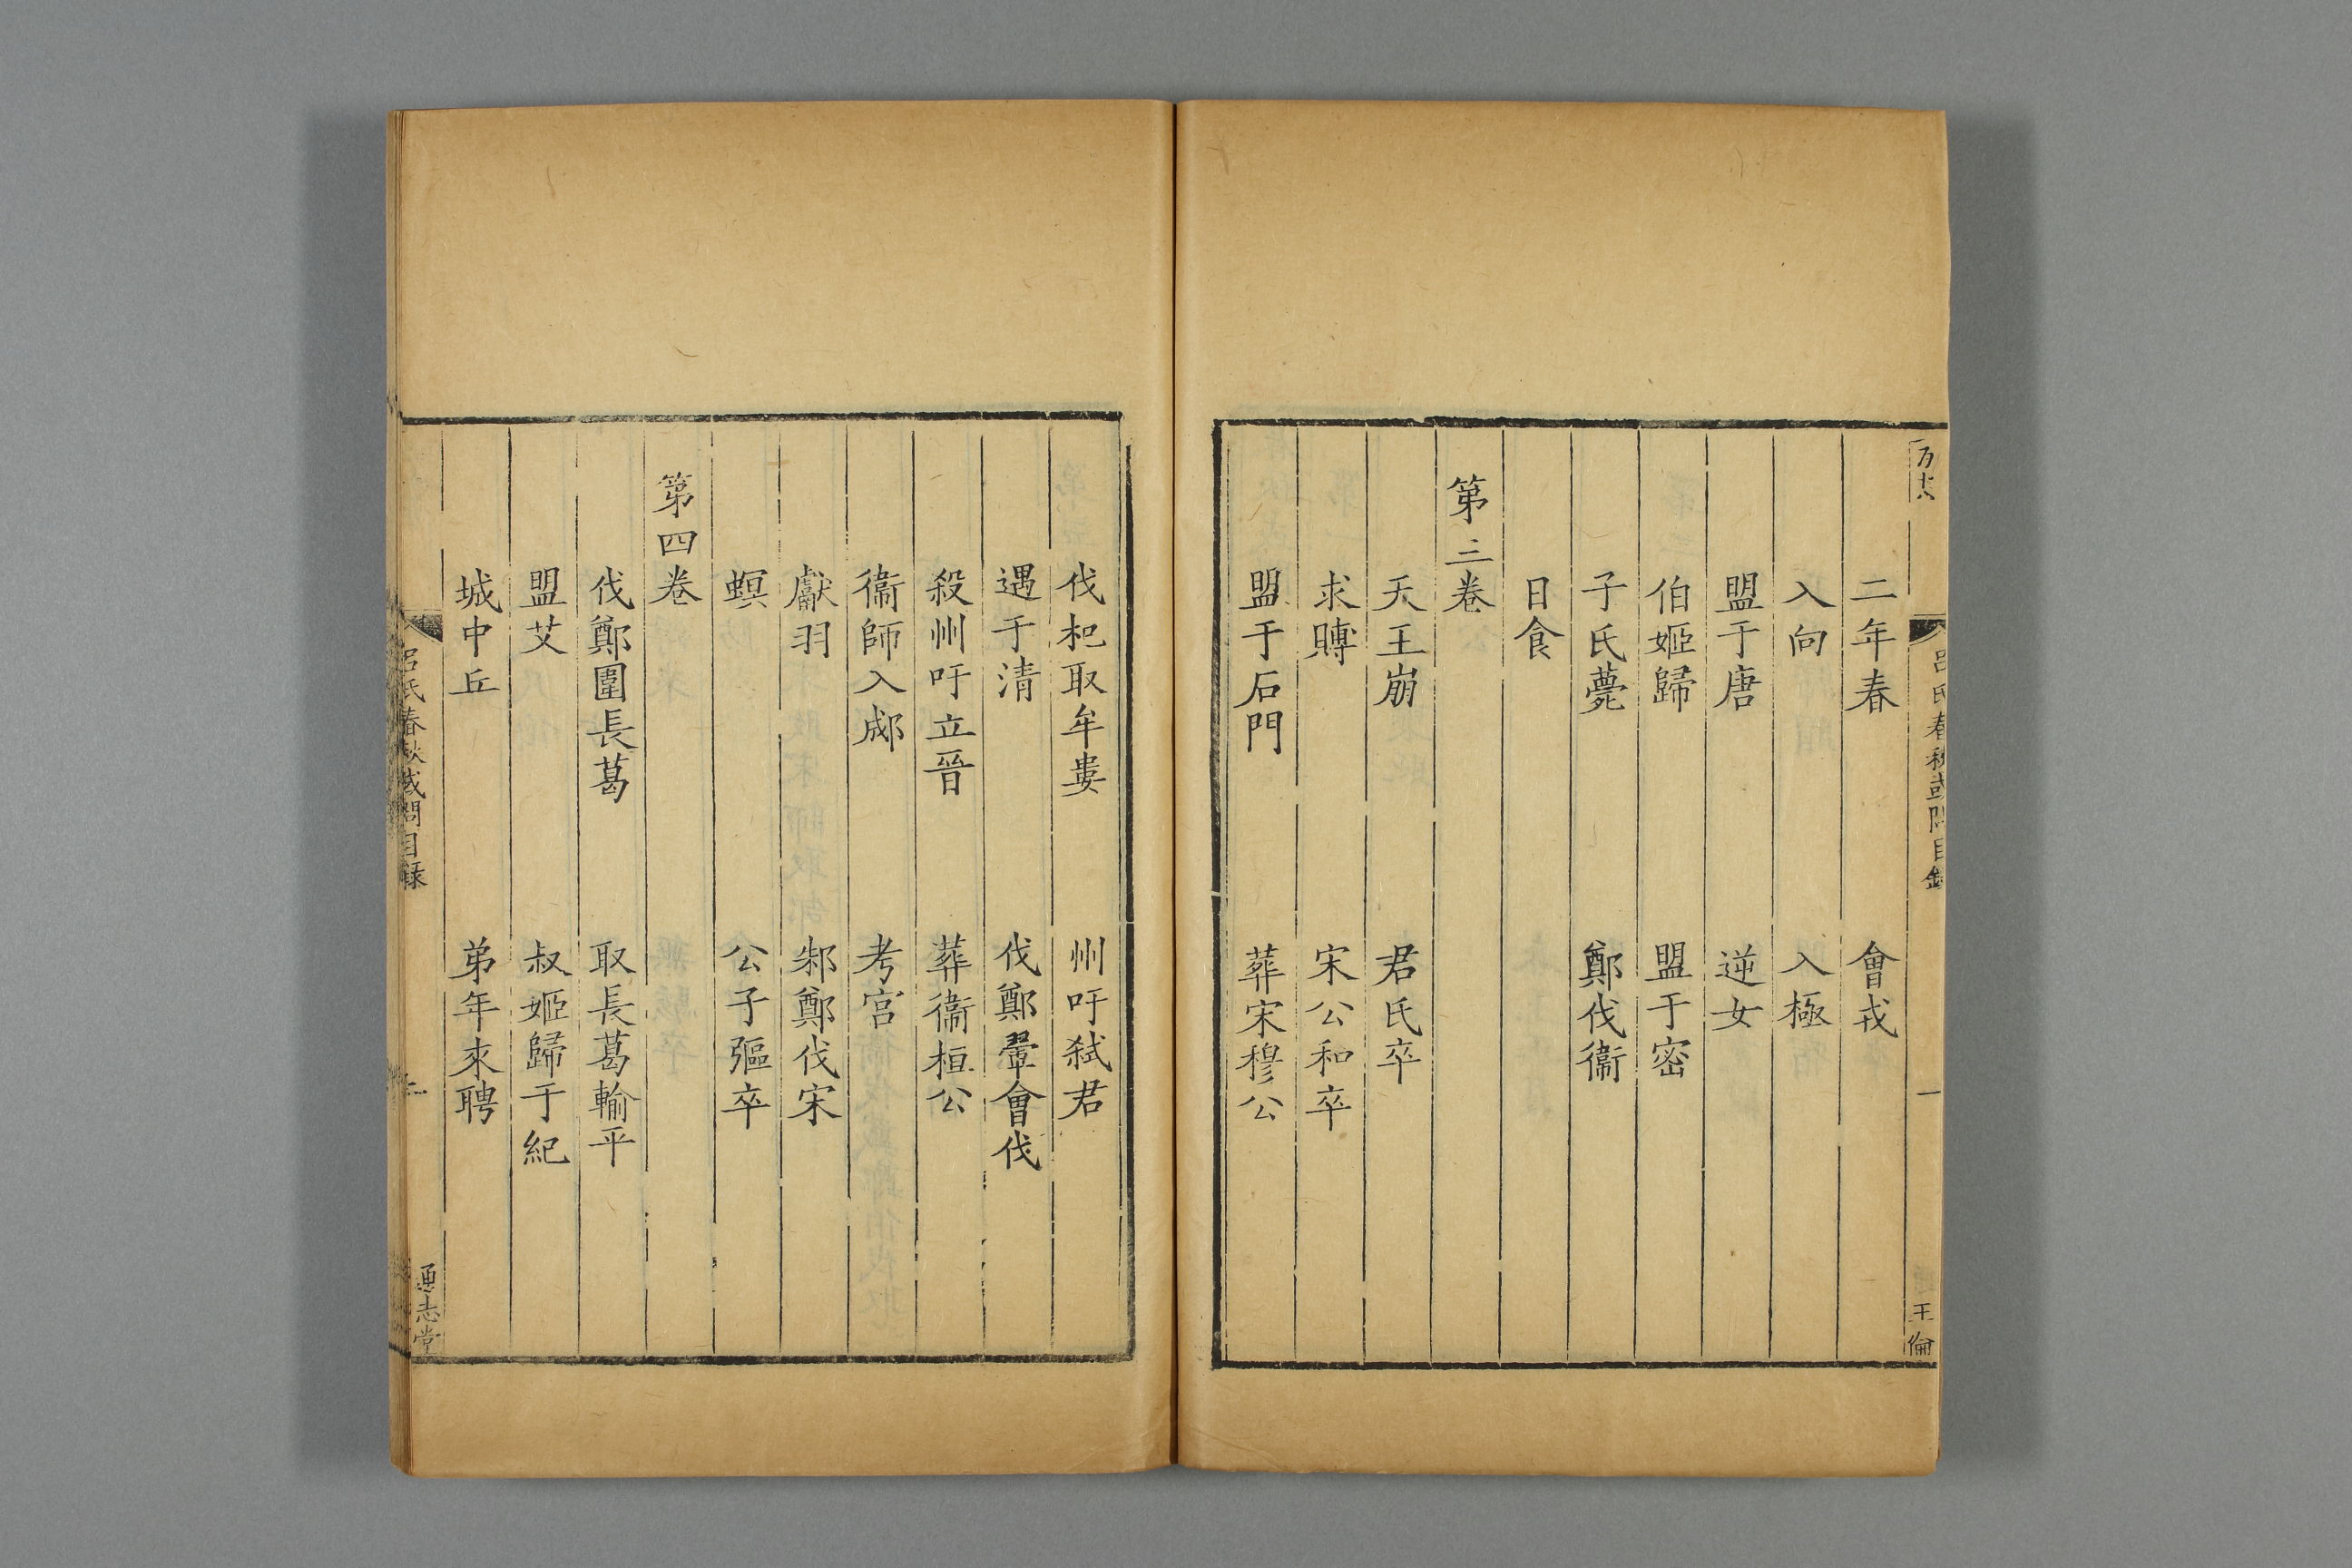 二年春　會戎
入向　入極
盟于唐　逆女
伯姬歸　盟于密
子氏薨　鄭伐衞
日食
第三卷
天王崩　君氏卒
求賻　宋公和卒
盟于石門　葬宋穆公
呂氏春秋或問目錄
一
王倫
伐杞取牟婁　州吁弑君
遇于清　伐鄭翬會伐
殺州吁立晉　葬衞桓公
衞師入郕　考宮
獻羽　邾鄭伐宋
螟　公子彄卒
第四卷
伐鄭圍長葛　取長葛輸平
盟艾　叔姬歸于紀
城中丘　弟年來聘
呂氏春秋或問目錄
通志堂